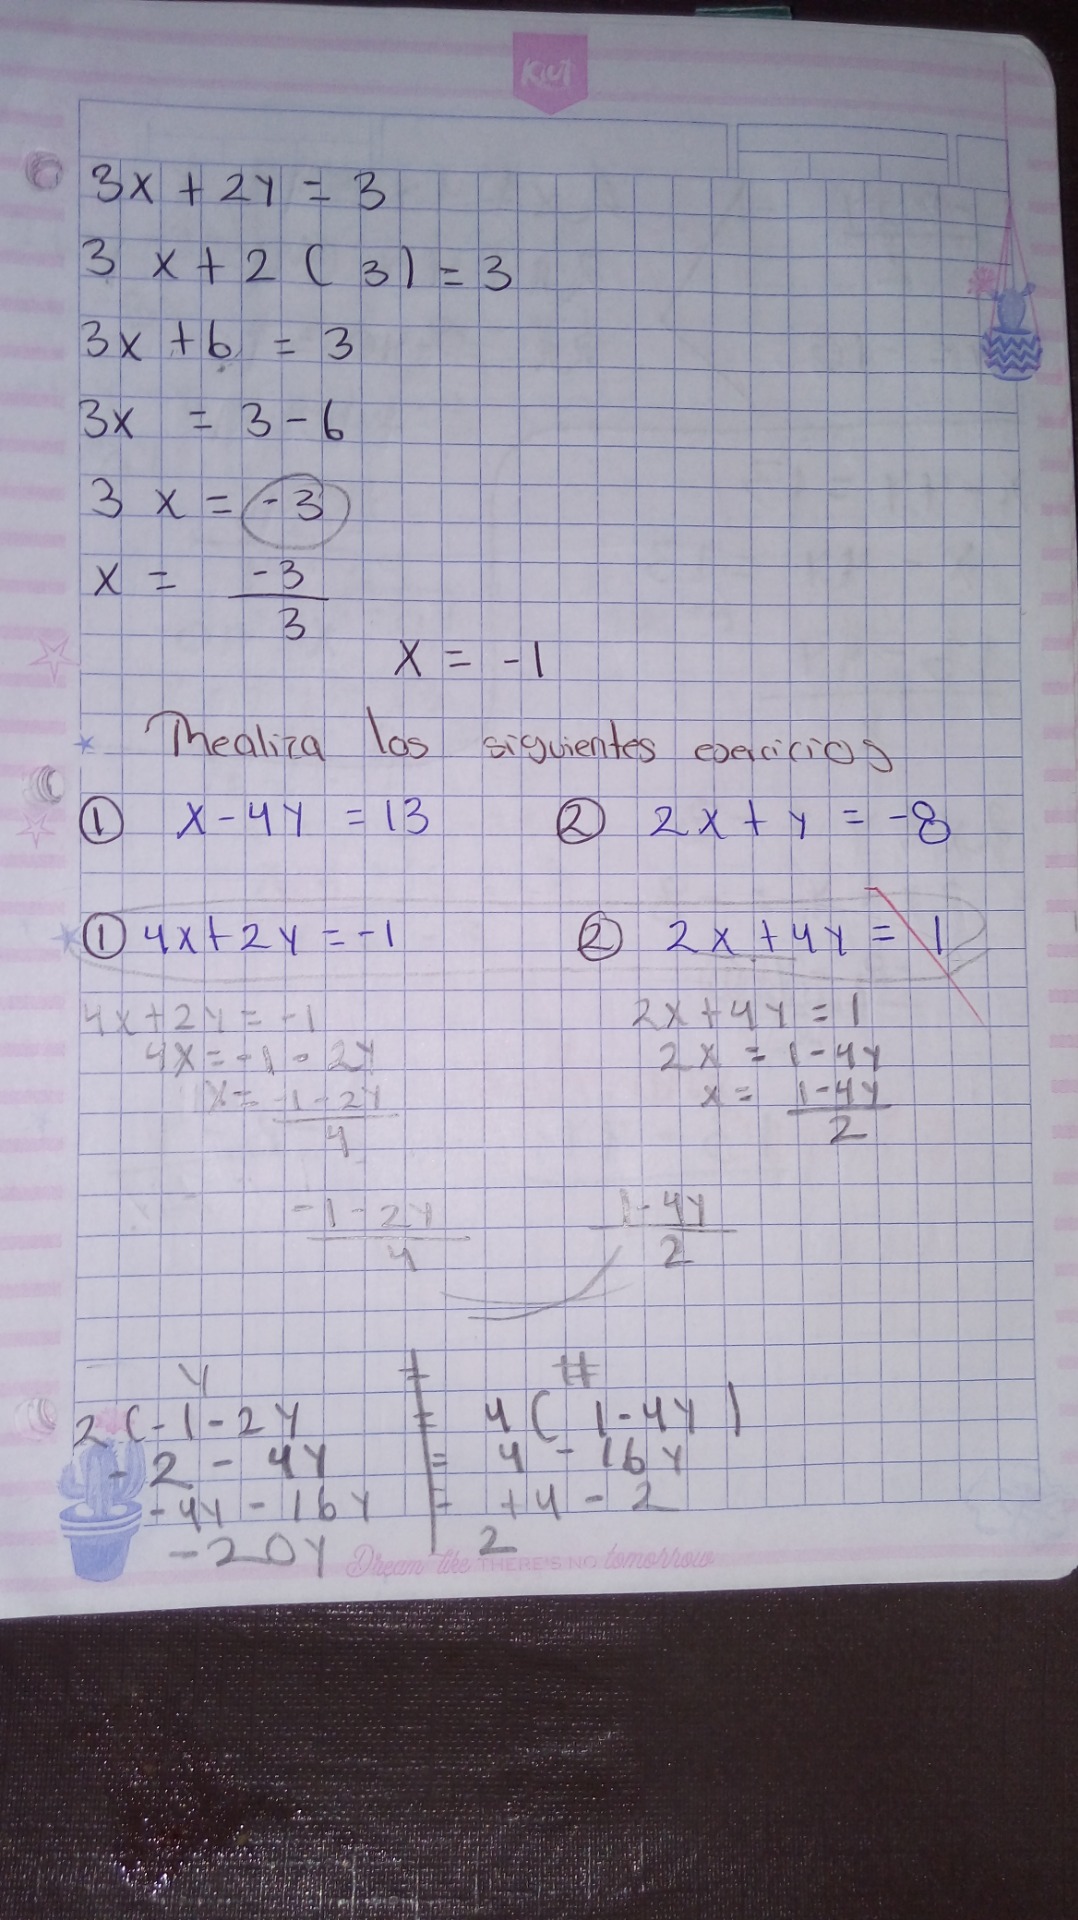 Kiut
3x + 2y = 3
3 x + 2 ( 3 ) = 3
3x + 6 = 3
3x = 3 - 6
3 x = -3
x = -3
3
x = -1
Realiza los siguientes ejercicios
① x - 4y = 13 ② 2x + y = -8
① 4x + 2y = -1 ② 2x + 4y = 1
4x + 2y = -1 2x + 4y = 1
4x = -1 - 2y 2x = 1 - 4y
x = -1 - 2y x = 1 - 4y
4 2
-1 - 2y 1 - 4y
4 2
y = #
2 (-1 - 2y = 4 ( 1 - 4y )
- 2 - 4y = 4 - 16y
- 4y - 16y = + 4 - 2
- 20y 2
Dream like THERE'S NO tomorrow